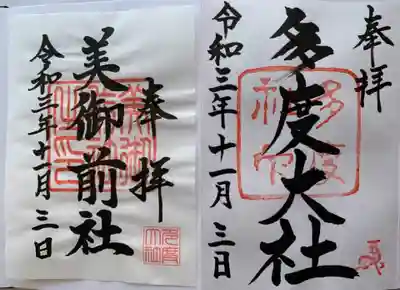 奉拝
美御前社
令和三年十一月三日
奉拝
多度大社
令和三年十一月三日